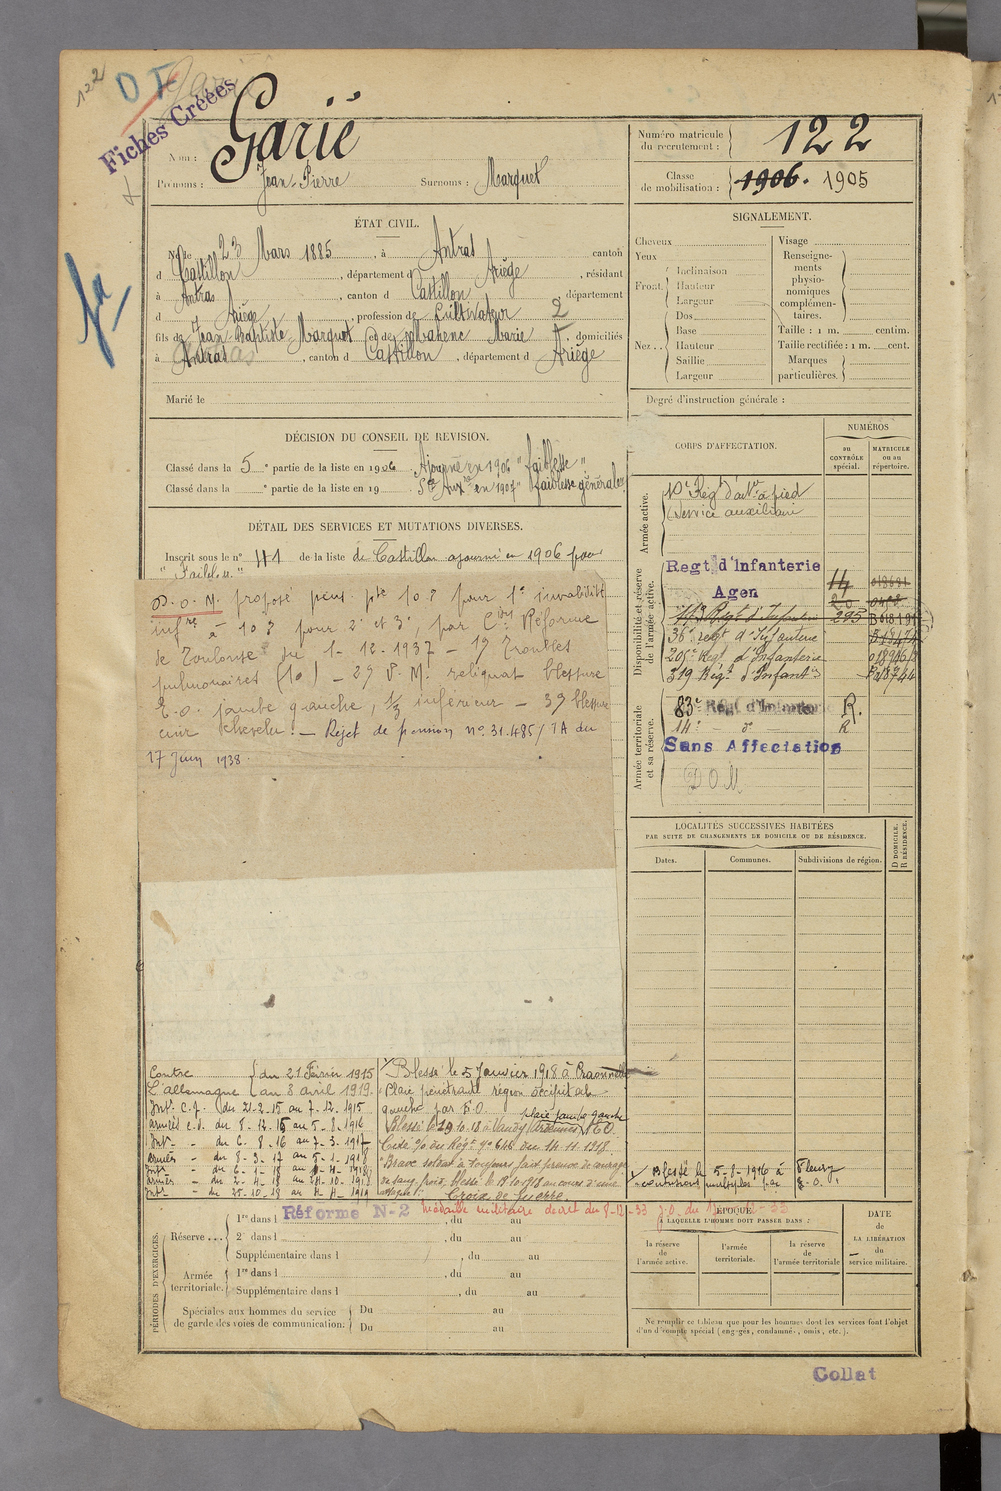 122
D
Fiches Créées
Nom : Garié
Prénoms : Jean-Pierre Surnoms : Marquet
Numéro matricule du recrutement : 122
Classe de mobilisation : 1906. 1905
ÉTAT CIVIL.
Né le 23 Mars 1885, à Antras canton
d Castillon, département d Ariège, résidant
à Antras, canton d Castillon département
d Ariège, profession de Cultivateur
fils de Jean-Baptiste Marquet et de Marie, domiciliés
à Antras, canton d Castillon, département d Ariège
Marié le
SIGNALEMENT.
Cheveux
Yeux
Front.
Inclinaison
Hauteur
Largeur
Nez..
Dos
Base
Hauteur
Saillie
Largeur
Visage
Renseignements physionomiques complémentaires.
Taille : 1 m. centim.
Taille rectifiée : 1 m. cent.
Marques particulières.
Degré d'instruction générale :
DÉCISION DU CONSEIL DE REVISION.
Classé dans la 5e partie de la liste en 1906 Ajourné en 1906 "faiblesse"
Classé dans la e partie de la liste en 19 Sce Auxre en 1907 "faiblesse générale"
DÉTAIL DES SERVICES ET MUTATIONS DIVERSES.
Inscrit sous le n° 41 de la liste de Castillon ajourné en 1906 pour
"Faiblesse"
D.O.M. proposé pens. pte 10 % pour 1° invalidité
infre à 10 % pour 2° et 3°, par Con Réforme
de Toulouse du 1-12-1937 - 1°) Troubles
pulmonaires (10) - 2°) P.M. reliquat blessure
E.O. jambe gauche, 1/3 inférieur - 3°) blessure
cuir chevelu. - Rejet de pension n° 31.485/7A du
17 Juin 1938.
Contre du 21 Février 1915
L'allemagne au 3 avril 1919.
Int. C.f. du 21-2-15 au 7-12-1915
armées c.d. du 8-12-15 au 5-8-1916
Int. - du 6-8-16 au 7-3-1917
armées - du 8-3-17 au 5-1-1918
Blessé le 5 Janvier 1918 à
Plaie pénétrante région occipitale
gauche par E.O. plaie jambe gauche
Blessé le 19-10-18 à Vandy (Ardennes) E.O.
Cité % du Régt n° 646 du 14-11-1918.
"Brave soldat a toujours fait preuve de courage
de sang froid, blessé le 19-10-1918 au cours d'une
Croix de Guerre
Blessé le 5-8-1916 à Fleury
contusions multiples par E.O.
CORPS D'AFFECTATION.
NUMÉROS
AU CONTRÔLE spécial.
MATRICULE ou au répertoire.
Armée active.
Régt d'art. à pied
(Service auxiliaire
Disponibilité et réserve de l'armée active.
Regt d'Infanterie
Agen
14
20
Régt d'Infanterie
36e regt d'Infanterie
205e Regt d'Infanterie
319 Régt d'Infantie
Armée territoriale et sa réserve.
83e Régt d'Infanterie R.
14e - d° - R
Sans Affectation
D O M
LOCALITÉS SUCCESSIVES HABITÉES
PAR SUITE DE CHANGEMENTS DE DOMICILE OU DE RÉSIDENCE.
Dates.
Communes.
Subdivisions de région.
D DOMICILE.
R RÉSIDENCE.
Réforme N-2 Médaille militaire décret du 8-12-33
PÉRIODES D'EXERCICES.
Réserve...
1re dans l , du au
2e dans l , du au
Supplémentaire dans l , du au
Armée territoriale.
1re dans l , du au
Supplémentaire dans l , du au
Spéciales aux hommes du service de garde des voies de communication.
Du au
Du au
ÉPOQUE
À LAQUELLE L'HOMME DOIT PASSER DANS :
la réserve de l'armée active.
l'armée territoriale.
la réserve de l'armée territoriale
DATE de LA LIBÉRATION du service militaire.
Ne remplir ce tableau que pour les hommes dont les services font l'objet
d'un décompte spécial (engagés, condamnés, omis, etc.).
Collat